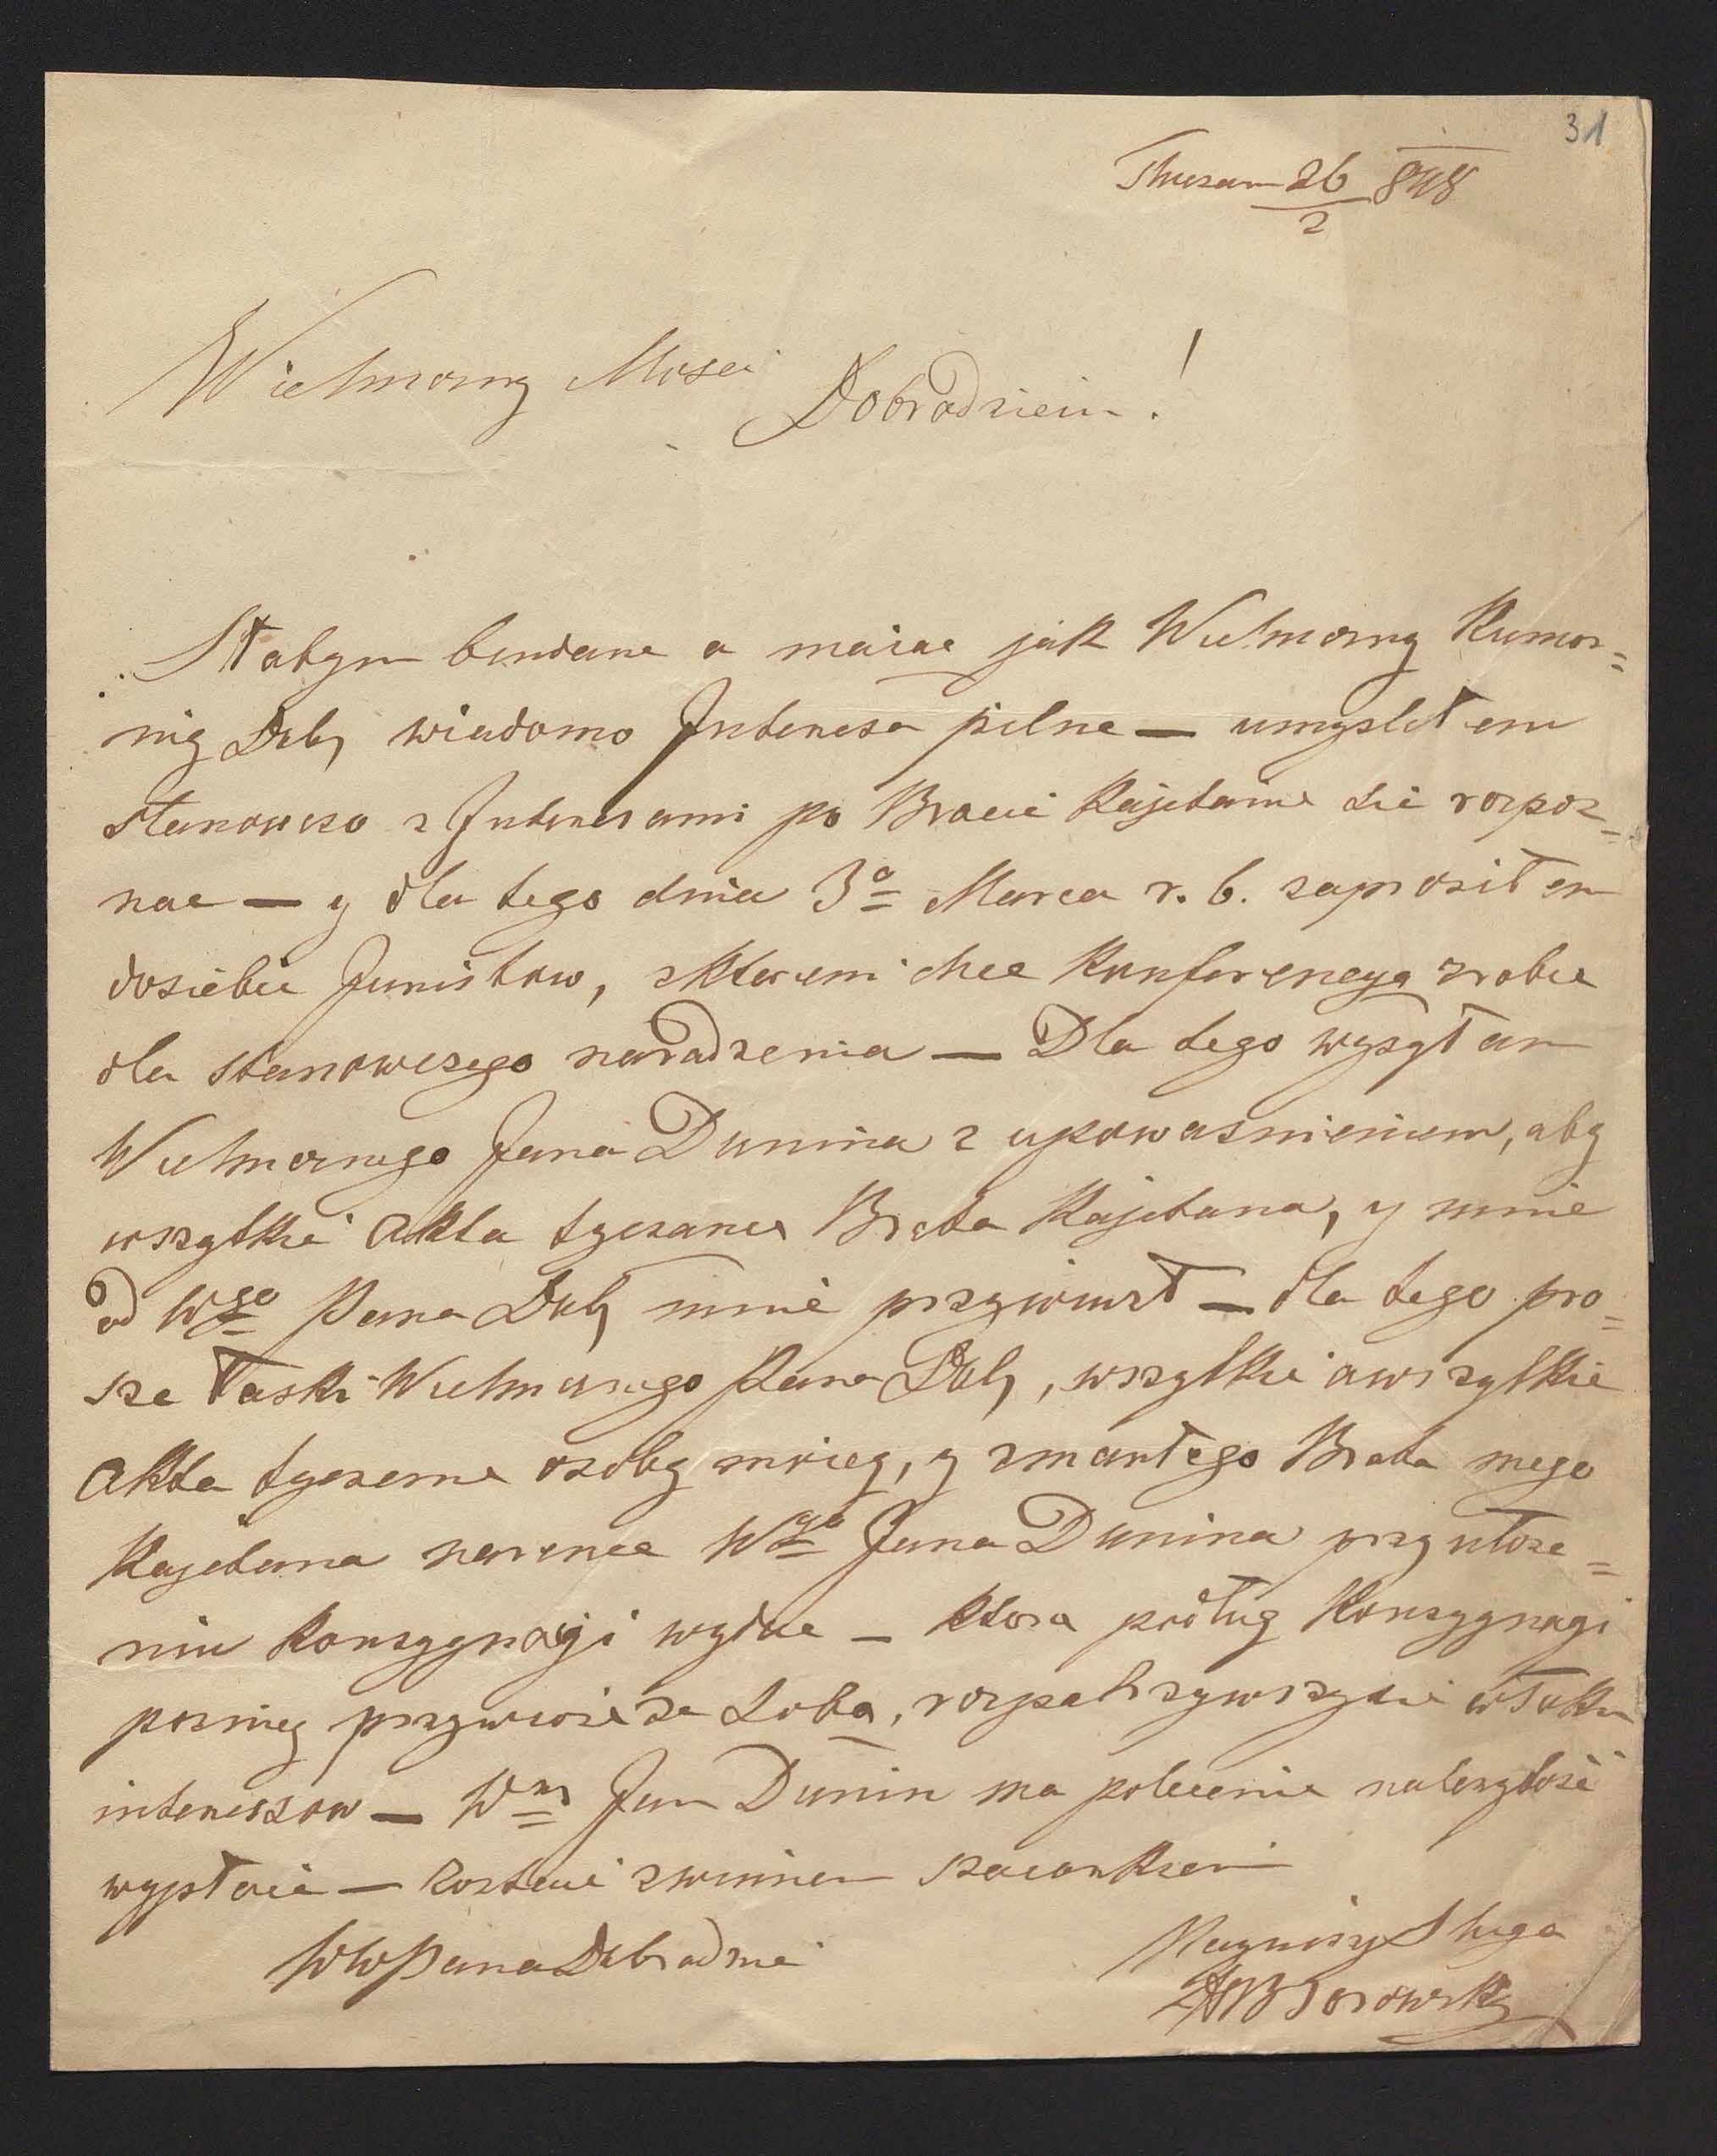 31
26/2 848
Wielmozny Mosci
Dobrodzieiu!
Słabym bendane a maiac jak Wielmozny Kumor=
nig Dob, wiadomo Interesa pilne — umyslełem
stanowczo z Interesami po Bracie Kajetanie sie rozpoz=
nac — y dla tego dnia 3o Marca r. b. zaprosiłem
dosiebie Juristow, zktoremi chce Konferencya zrobic
dla stanowczego naradzenia — Dla tego wysyłam
Wielmoznego Jana Dunina z upowaznieniem, aby
wszytkie akta tyczance Brata Kajetana, y mnie
od Wgo Pana Dob, mnie przywiuzł — dla tego pro=
sze łaski Wielmoznego Pana Dob, wszytkie awszytkie
akta tyczeme osoby moiey, y zmarłego Brata mego
Kajetana narence Wgo Jana Dunina przy ułoze=
niu Konsygnagi wydac — ktora podług Konsygnagi
pozniey przywioze ze Soba, rozpatrzywszysie wtoku
interesszow — Wny Jan Dunin ma polecenie nalezytosc
wypłacic — Zostaie zwinnem szacunkiem
WWPana Dobradzieia
Nayniszy Sługa
Borowski